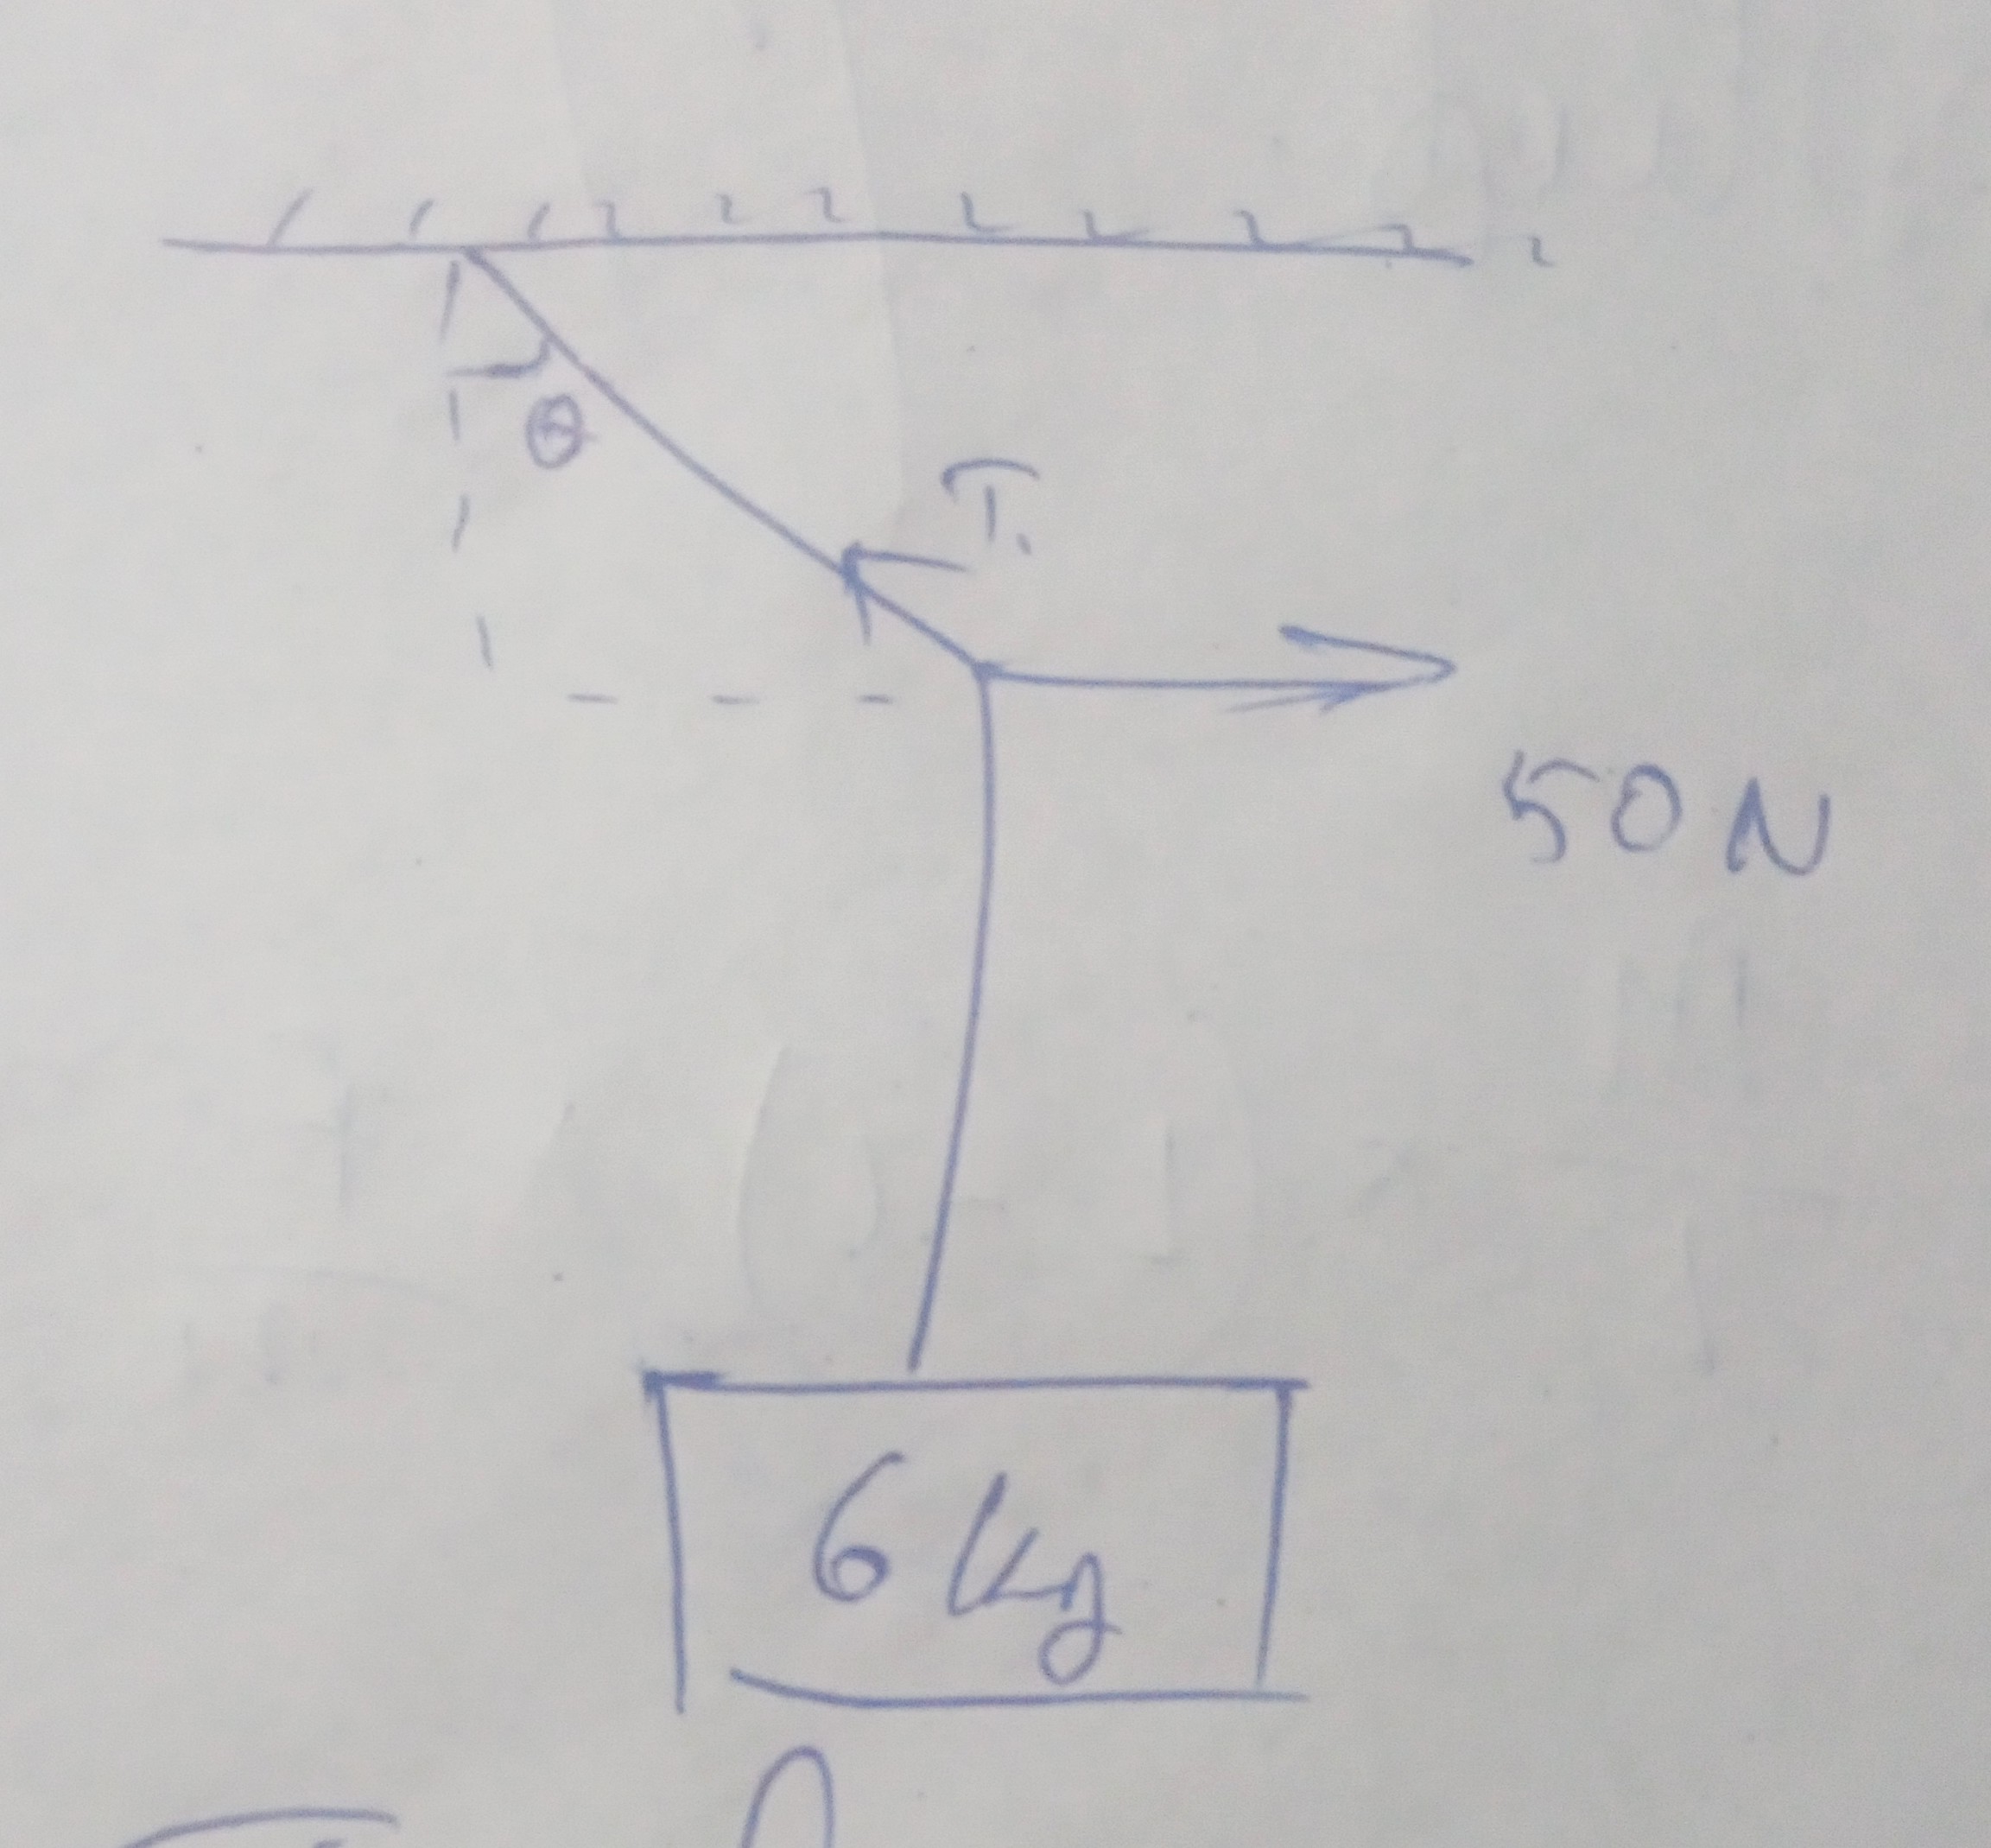 θ
T.
50 N
6 kg